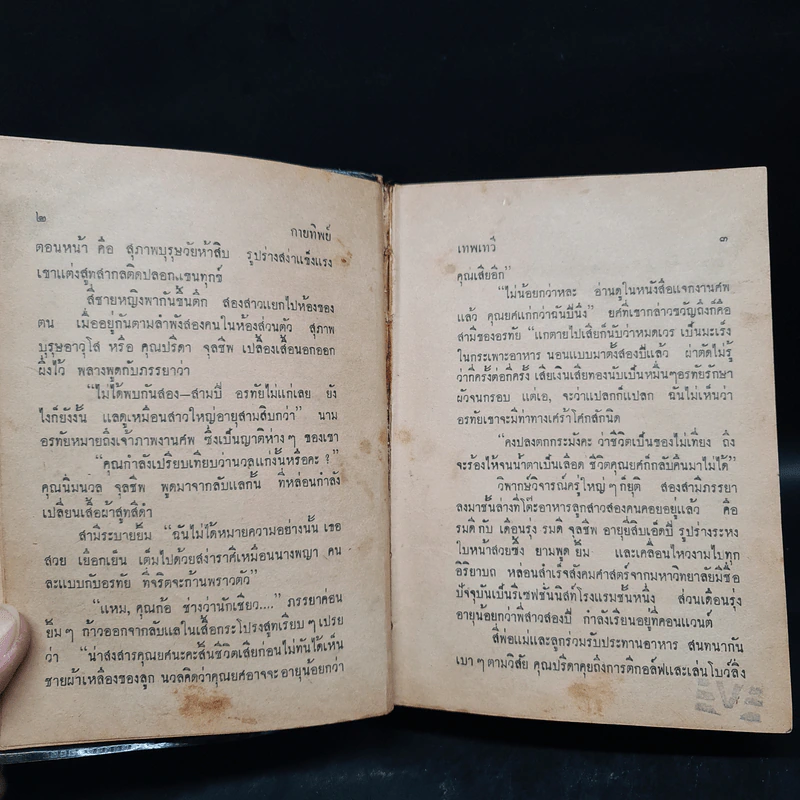 ๒
กายทิพย์
ตอนหน้า คือ สุภาพบุรุษวัยห้าสิบ รูปร่างสง่าแข็งแรง
เขาแต่งสูทสากลติดปลอกแขนทุกข์
สี่ชายหญิงพากันขึ้นตึก สองสาวแยกไปห้องของ
ตน เมื่ออยู่กันตามลำพังสองคนในห้องส่วนตัว สุภาพ
บุรุษอาวุโส หรือ คุณปรีดา จุลชีพ เปลื้องเสื้อนอกออก
ผึ่งไว้ พลางพูดกับภรรยาว่า
“ไม่ได้พบกันสอง—สามปี อรทัยไม่แก่เลย ยัง
ไงก็ยังงั้น แลดูเหมือนสาวใหญ่อายุสามสิบกว่า” นาม
อรทัยหมายถึงเจ้าภาพงานศพ ซึ่งเป็นญาติห่างๆ ของเขา
“คุณกำลังเปรียบเทียบว่านวลแก่งั้นหรือคะ ?”
คุณนิ่มนวล จุลชีพ พูดมาจากลับแลกั้น ที่หล่อนกำลัง
เปลี่ยนเสื้อผ้าสูทสีดำ
สามีระบายยิ้ม “ฉันไม่ได้หมายความอย่างนั้น เธอ
สวย เยือกเย็น เต็มไปด้วยสง่าราศีเหมือนนางพญา คน
ละแบบกับอรทัย ที่จริตจะก้านพราวตัว”
“แหม, คุณก้อ ช่างว่านักเชียว....” ภรรยาค่อน
ยิ้มๆ ก้าวออกจากลับแลในเสื้อกระโปรงสูทเรียบๆ เปรย
ว่า “น่าสงสารคุณยศนะคะสิ้นชีวิตเสียก่อนไม่ทันได้เห็น
ชายผ้าเหลืองของลูก นวลคิดว่าคุณยศอาจจะอายุน้อยกว่า
เทพเทวี
๓
คุณเสียอีก”
“ไม่น้อยกว่าหละ อ่านดูในหนังสือแจกงานศพ
แล้ว คุณยศแก่กว่าฉันปีนึง” ยศที่เขากล่าวขวัญถึงก็คือ
สามีของอรทัย “แกตายไปเสียก็นับว่าหมดเวร เป็นมะเร็ง
ในกระเพาะอาหาร นอนแบบมาตั้งสองปีแล้ว ผ่าตัดไม่รู้
ว่ากี่ครั้งต่อกี่ครั้ง เสียเงินเสียทองนับเป็นหมื่นๆอรทัยรักษา
ผัวจนกรอบ แต่เอ, จะว่าแปลกก็แปลก ฉันไม่เห็นว่า
อรทัยเขาจะมีท่าทางเศร้าโศกสักนิด
“คงปลงตกกระมังคะ ว่าชีวิตเป็นของไม่เที่ยง ถึง
จะร้องไห้จนน้ำตาเป็นเลือด ชีวิตคุณยศก็กลับคืนมาไม่ได้”
วิพากษ์วิจารณ์ครู่ใหญ่ๆก็ยุติ สองสามีภรรยา
ลงมาชั้นล่างที่โต๊ะอาหารลูกสาวสองคนคอยอยู่แล้ว คือ
รมดี กับ เดือนรุ่ง รมดี จุลชีพ อายุยี่สิบเอ็ดปี รูปร่างระหง
ใบหน้าสวยซึ้ง ยามพูด ยิ้ม และเคลื่อนไหวงามไปทุก
อิริยาบถ หล่อนสำเร็จสังคมศาสตร์จากมหาวิทยาลัยมีชื่อ
ปัจจุบันเป็นรีเซฟชั่นนิสท์โรงแรมชั้นหนึ่ง ส่วนเดือนรุ่ง
อายุน้อยกว่าพี่สาวสองปี กำลังเรียนอยู่ที่คอนแวนต์
สี่พ่อแม่และลูกร่วมรับประทานอาหาร สนทนากัน
เบาๆตามวิสัย คุณปรีดาคุยถึงการตีกอล์ฟและเล่นโบว์ลิ่ง